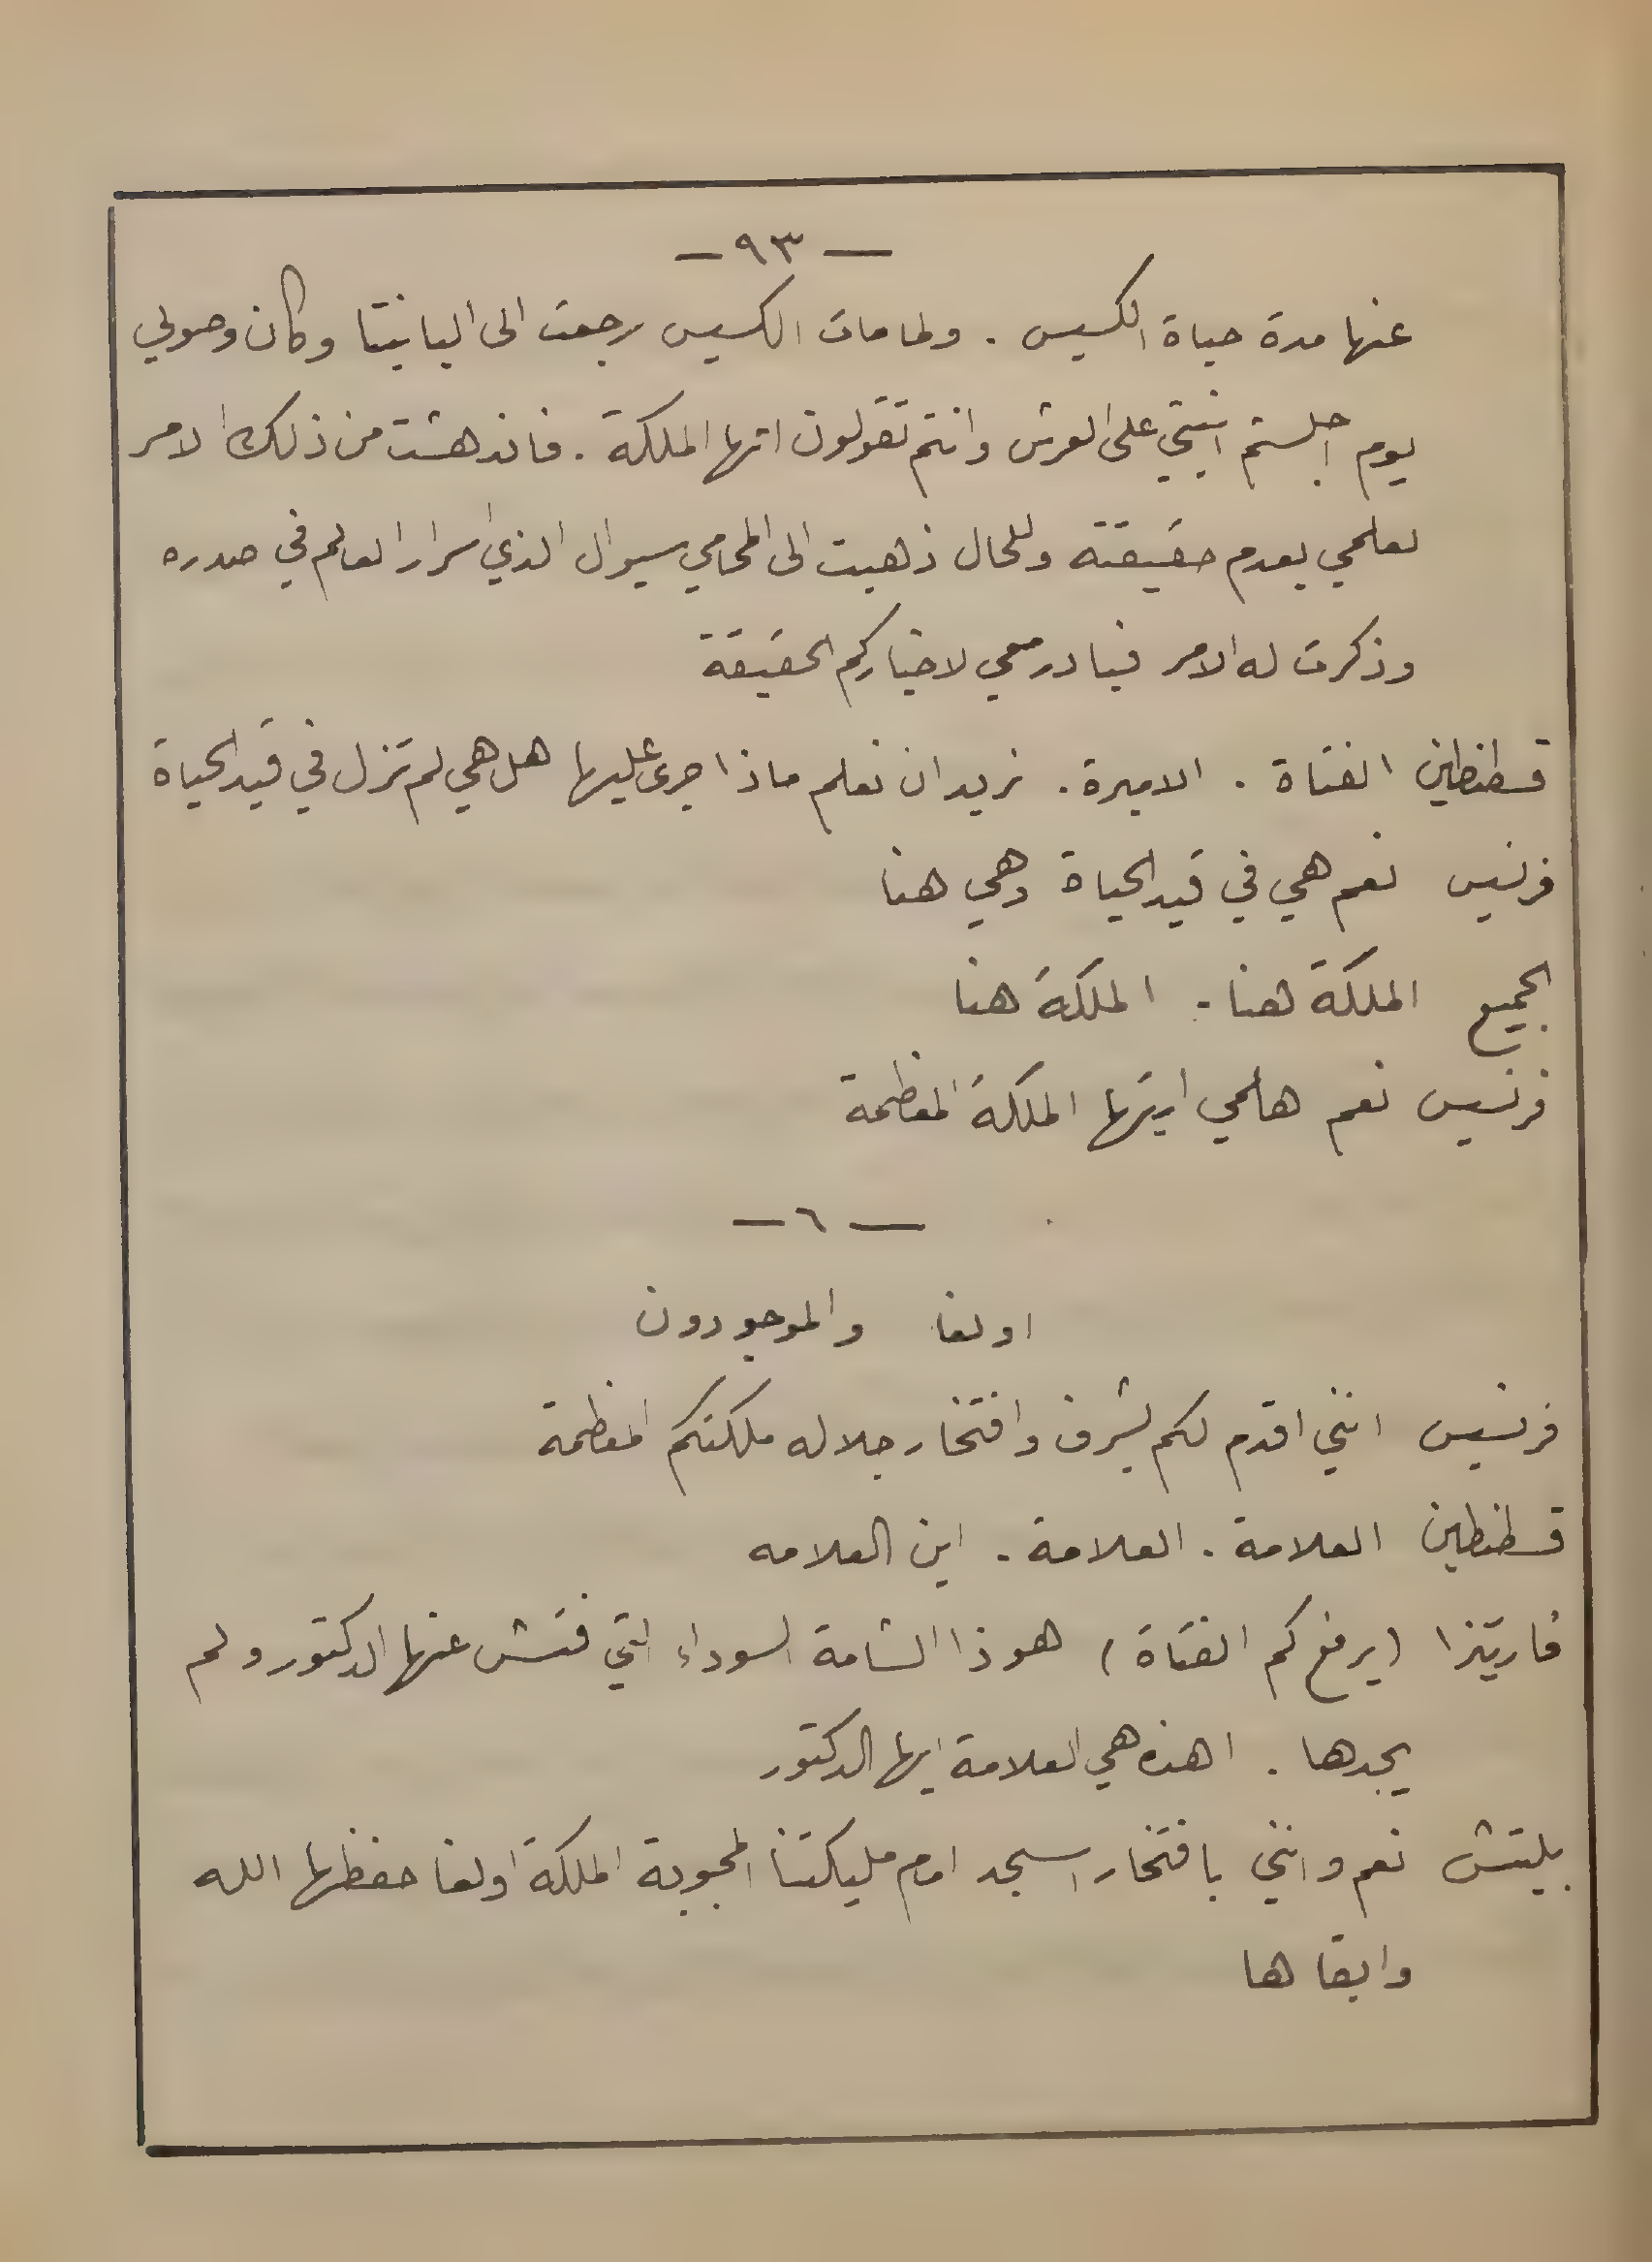 — ٩٣ —
عنها مدة حياة الكسيس . ولما مات الكسيس رجعت الى اليانيتا وكان وصولي
يوم اجلستم ابنتي على العرش وانتم تقولون انها الملكة . فاندهشت من ذلك الامر
لعلمي بعدم حقيقته وللحال ذهبت الى المحامي سيوال الذي اسرار العالم في صدره
وذكرت له الامر فبادر معي لاخباركم الحقيقة
قسطنطين الفتاة . الاميرة . نريد ان نعلم ماذا جرى عليها هل هي لم تزل في قيد الحياة
فرنسيس نعم هي في قيد الحياة وهي هنا
الجميع الملكة هنا . الملكة هنا
فرنسيس نعم هلمي ايتها الملكة المعظمة
— ٦ —
اولغا والموجودون
فرنسيس انني اقدم لكم بشرف وافتخار جلاله ملكتكم المعظمة
قسطنطين العلامة . العلامة . اين العلامه
فاريتزا (يرفع كم الفتاة) هوذا الشامة السوداء التي فتش عنها الدكتور ولم
يجدها . اهذه هي العلامة ايها الدكتور
بليتش نعم وانني بافتخار اسجد امام مليكتنا المحبوبة الملكة اولغا حفظها الله
وابقاها